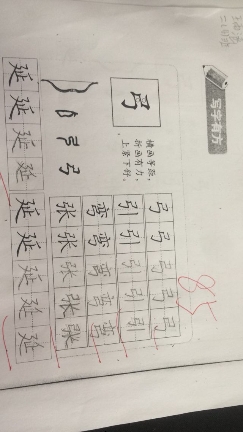 写字有方
弓
横画等距，
折画有力，
上紧下舒。
85
弓弓弓弓弓
引引引引引
弯弯弯弯弯
张张张张张
延延延延延延延延延